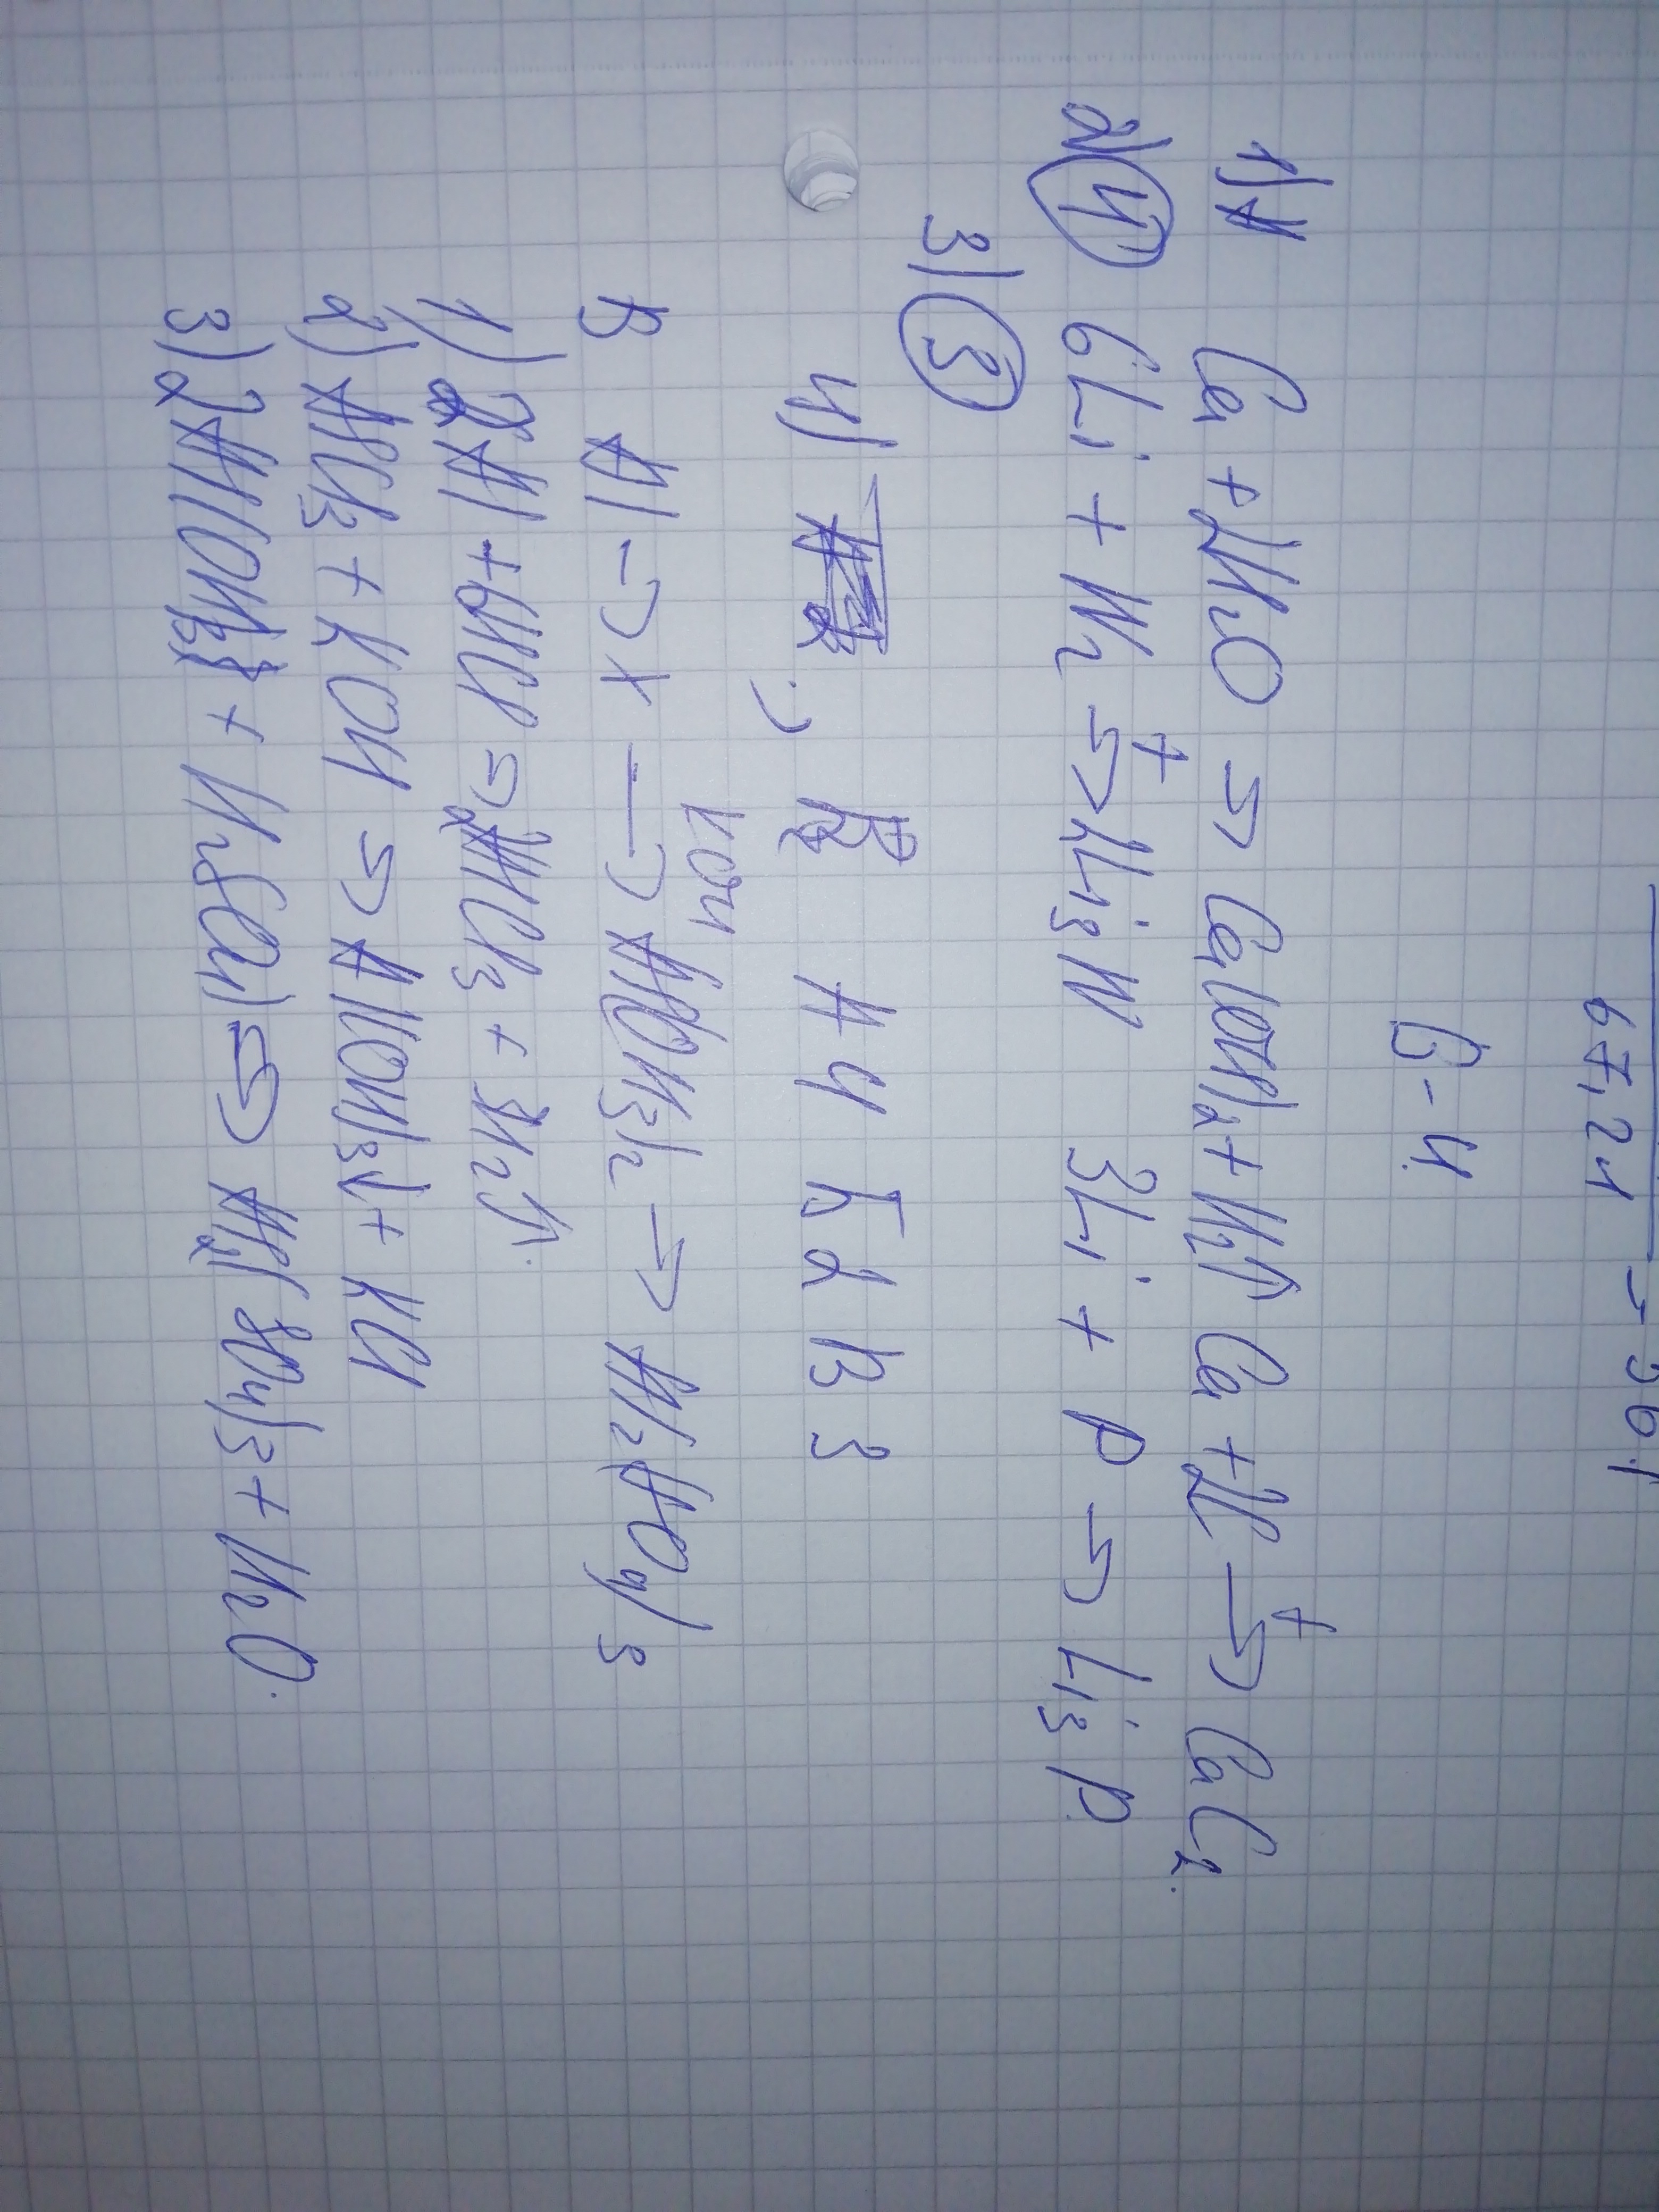 67,21 → 36,1
В-4
1) A Ca + 2H2O => Ca(OH)2 + H2↑ Ca + 2C →t CaC2.
2) 4) 6Li + N2 =>t 2Li3N 3Li + P => Li3P
3) 3)
4) A4 Б2 В3
KOH
В Al -> X -> Al(OH3)2 -> Al2(SO4)3
1) 2Al + 6HCl => 2AlCl3 + 3H2↑.
2) AlCl3 + KOH => Al(OH)3↓ + KCl
3) 2Al(OH)3 + H2SO4 => Al2(SO4)3 + H2O.